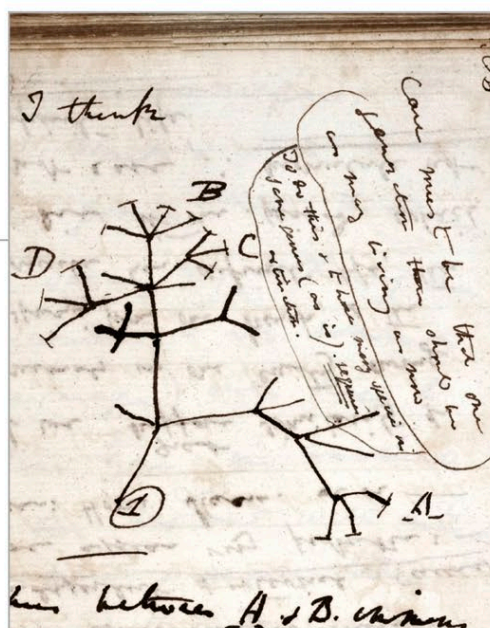 I think
Case must be that one
generation then should be
as many living as now
To do this & to have many species in
same genus (as is). requires
extinction.
B
D
C
A
1
between A & B.